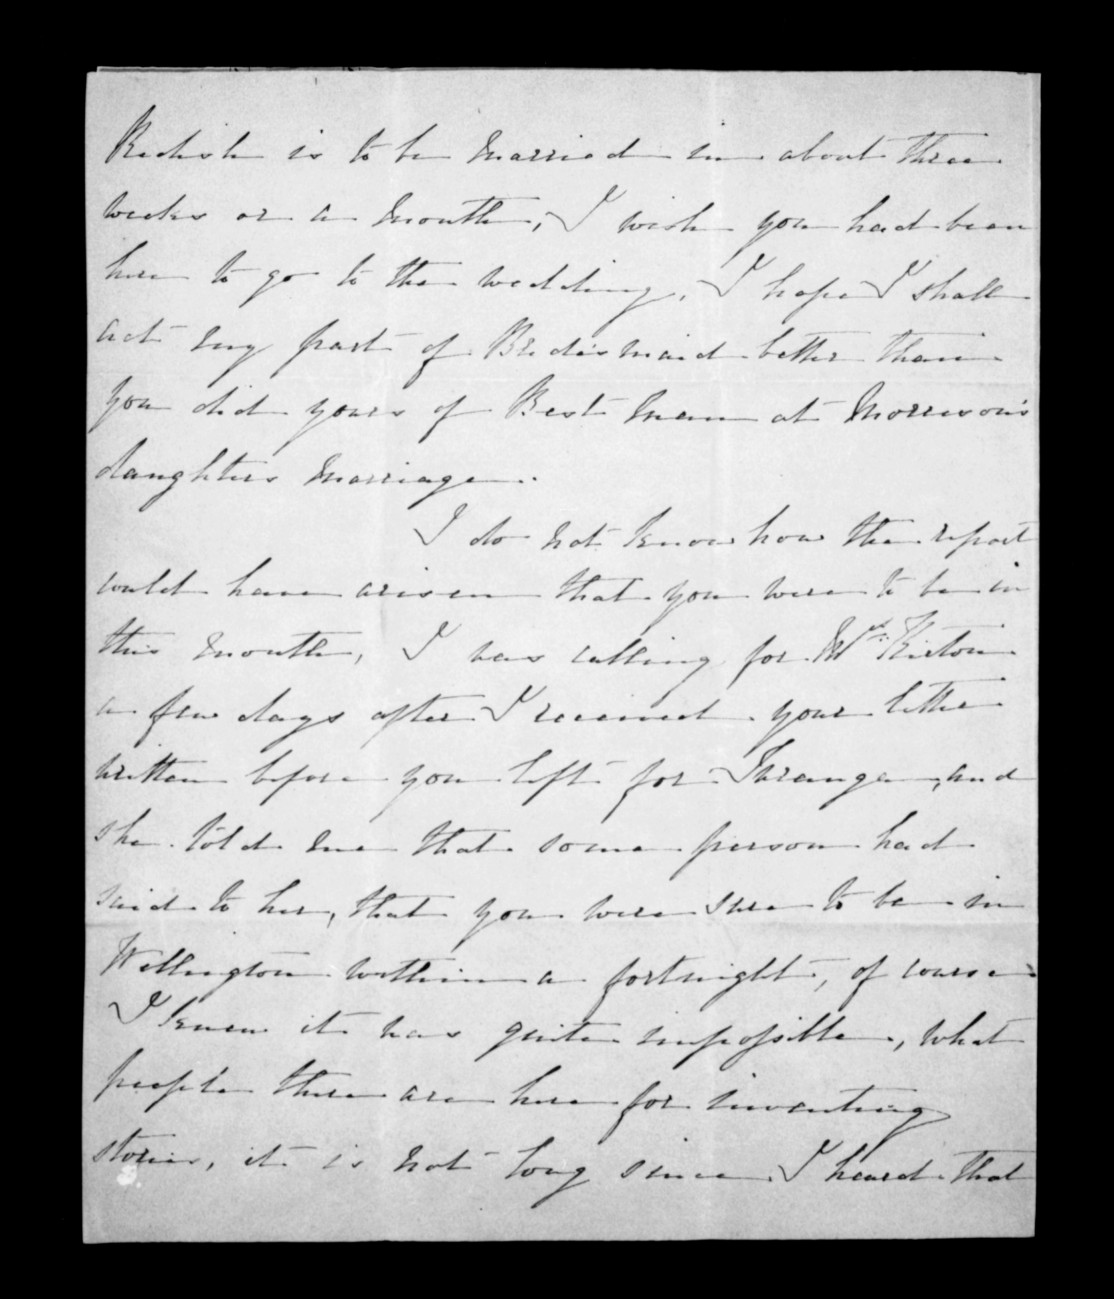 Redish is to be Married in about three
weeks or a Month, I wish you had been
here to go to the wedding. I hope I shall
act my part of Bridesmaid better than
you did yours of Best Man at Morrison's
daughters Marriage.
I do not know how the report
could have arisen that you were to be in
this Month, I was calling for Mrs. Kirton
a few days after I received your letter
written before you left for Turanga, and
she told me that some person had
said to her, that you were sure to be in
Wellington within a fortnight, of course
I knew it was quite impossible, what
people there are here for inventing
stories, it is not long since I heard that